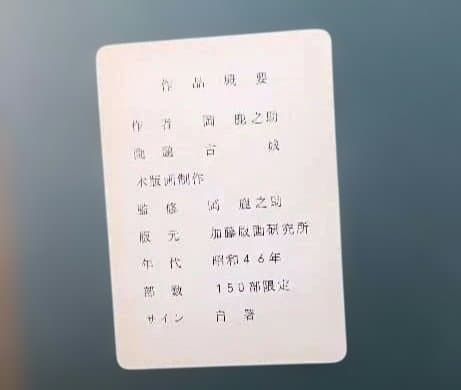 作品概要
作者 岡 鹿之助
画題 古城
木版画制作
監修 岡 鹿之助
版元 加藤版画研究所
年代 昭和46年
部数 150部限定
サイン 自署